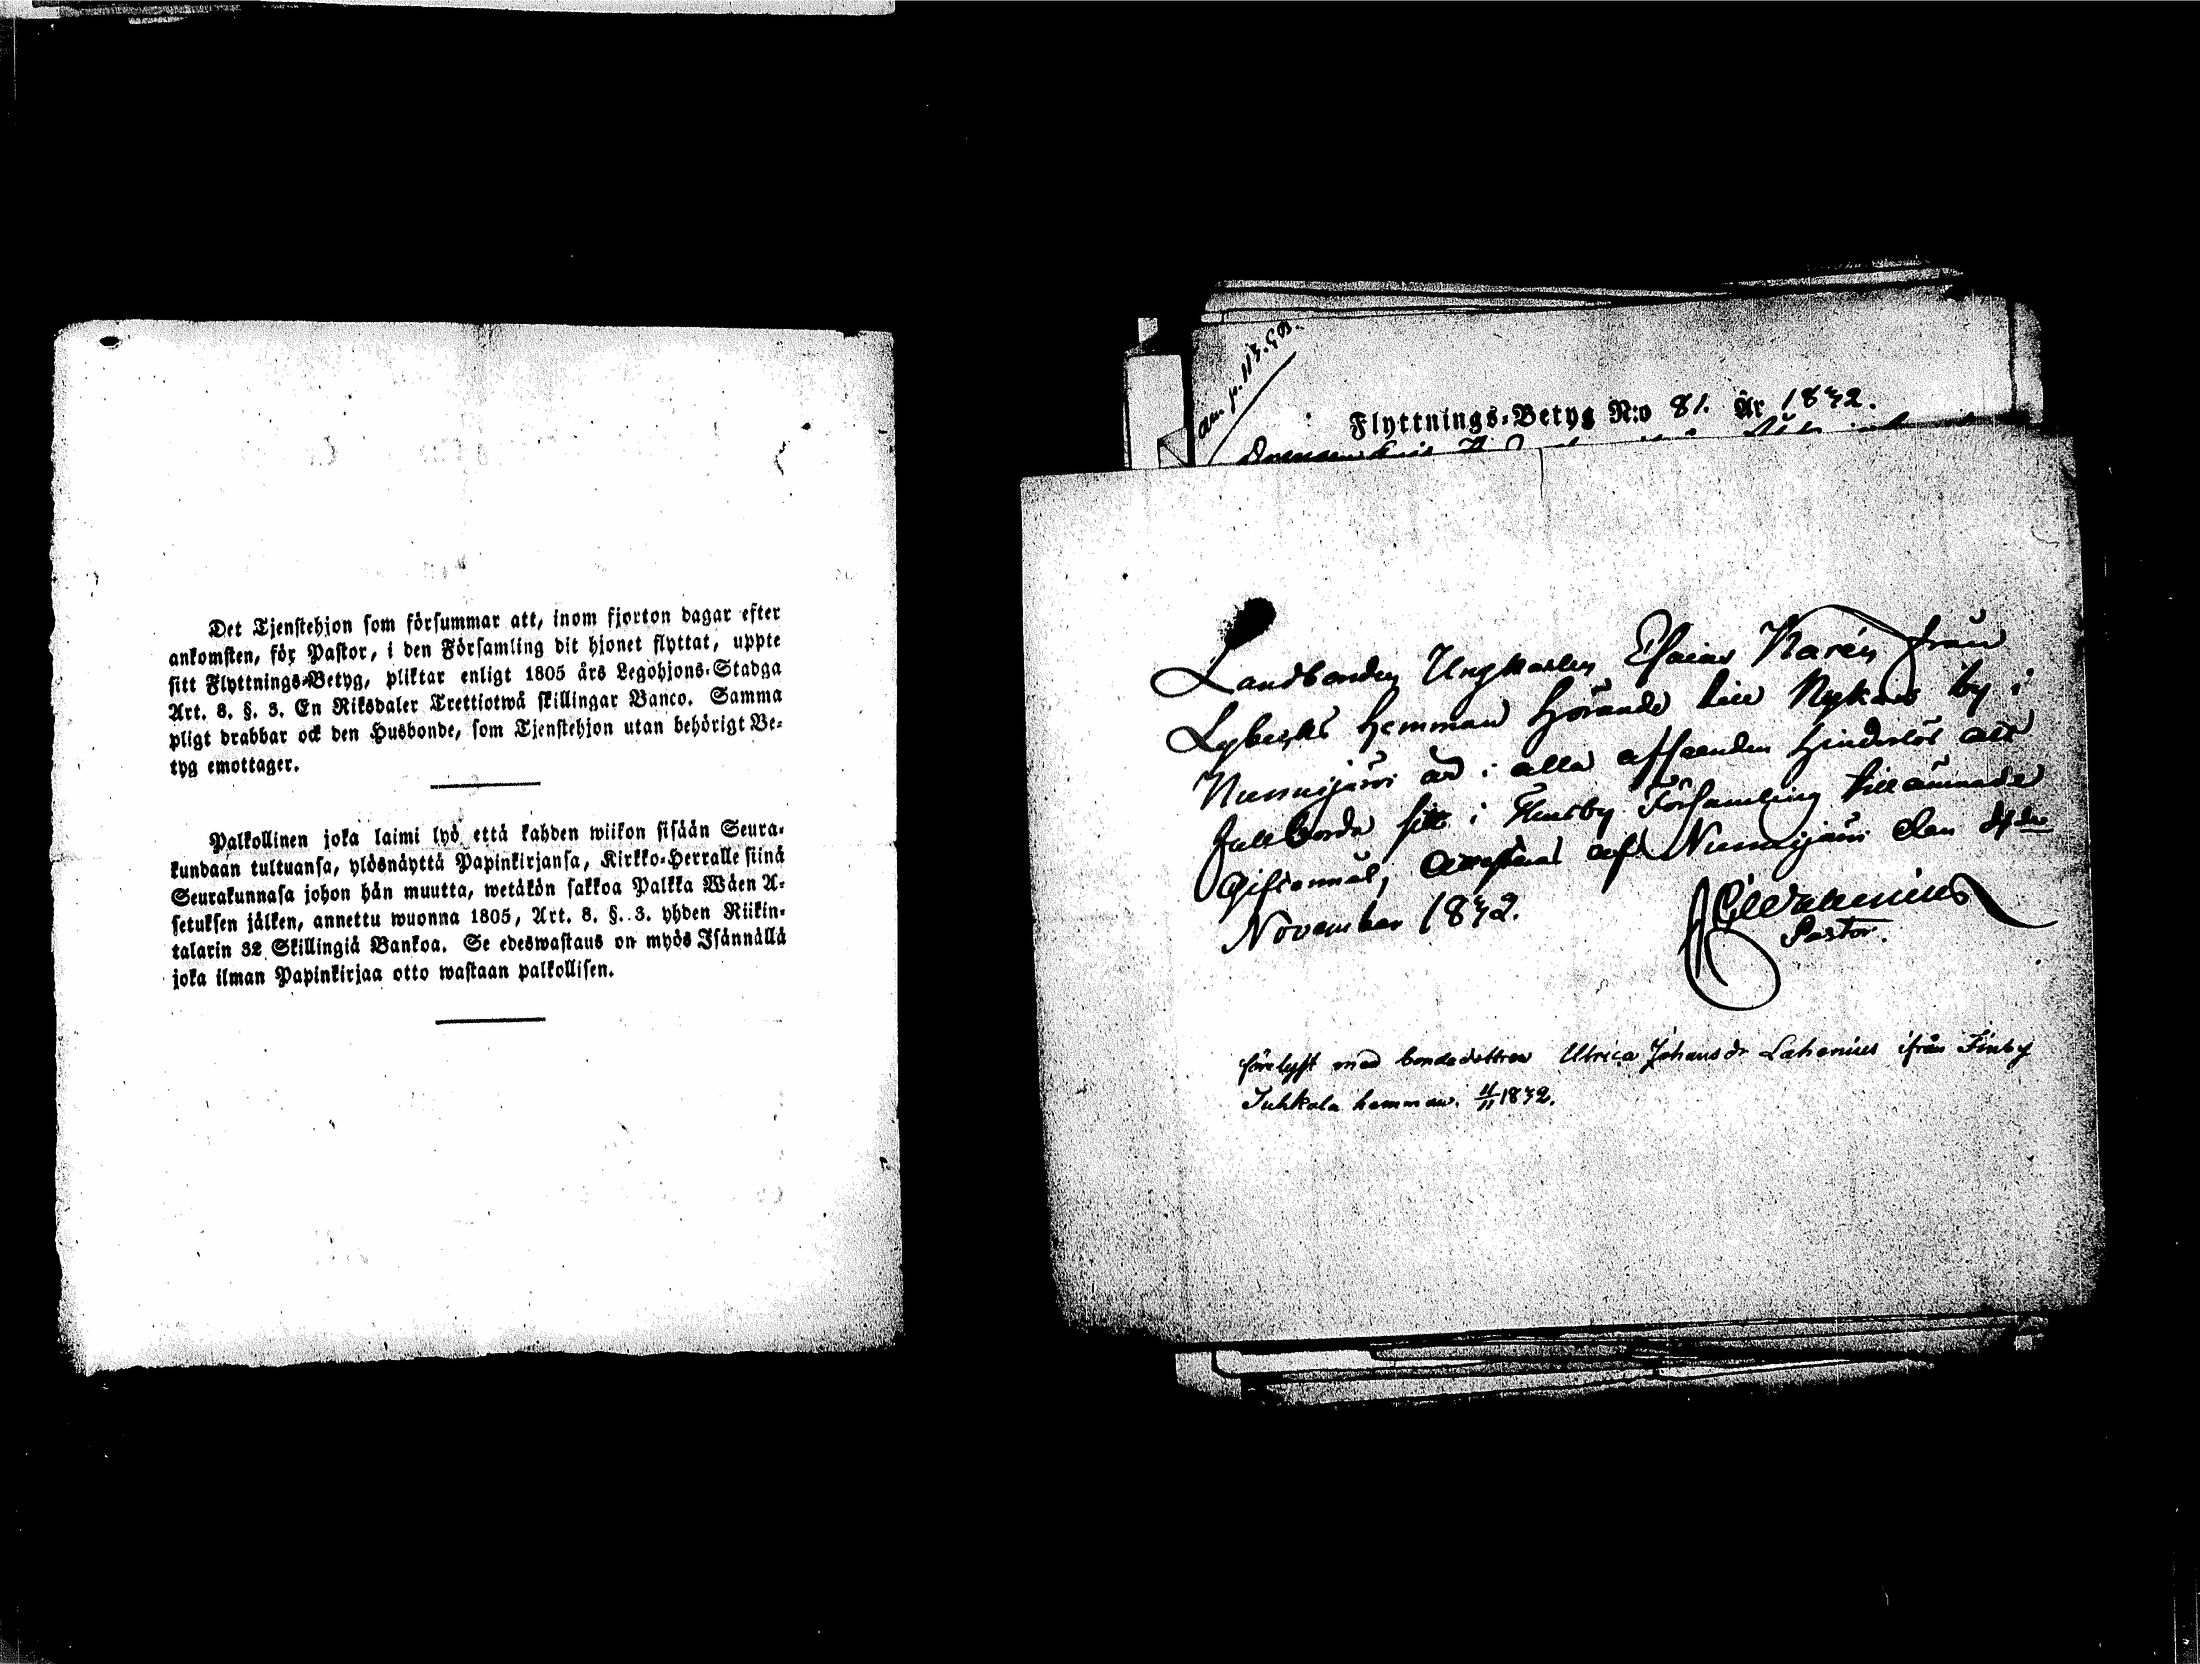 Det Tjenstehjon som försummar att, inom fjorton dagar efter
ankomsten, för Pastor, i den Församling dit hjonet flyttat, uppte
sitt Flyttnings-Betyg, pliktar enligt 1805 års Legohjons-Stadga
Art. 8. §. 3. En Riksdaler Trettiotwå skillingar Banco. Samma
pligt drabbar ock den Husbonde, som Tjenstehjon utan behörigt Be-
tyg emottager.
Palkollinen joka laimi lyö että kahden wiikon sisään Seura-
kundaan tultuansa, ylösnäyttä Papinkirjansa, Kirkko-Herralle siinä
Seurakunnasa johon hän muutta, wetäkön sakkoa Palkka Wäen A-
setuksen jälken, annettu wuonna 1805, Art. 8. §. 3. yhden Riikin-
talarin 32 Skillingiä Bankoa. Se edeswastaus on myös Isännällä
joka ilman Papinkirjaa otto wastaan palkollisen.
Flyttnings-Betyg N:o 81. År 1842.
Landbonden Ungkarlen Esaias Karén från
Lybecks hemman hörande till Nykars by i
Nummijärvi är i alla afseenden hinderlös att
fullborda sitt i Thusby Församling tillämnade
Giftermål, attesteras af Nummijärvi den
November 1842.
Pastor.
förelyst med bondedottren Ulrica Johansdr Lahenius ifrån Finby
Juhkola hemman. 4/11 1842.